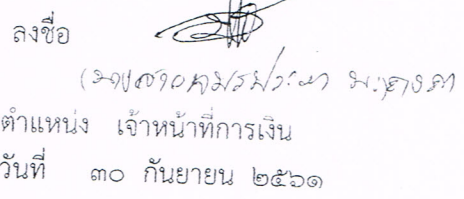 ลงชื่อ
(นางสาว
ตำแหน่ง เจ้าหน้าที่การเงิน
วันที่ ๓๐ กันยายน ๒๕๖๑